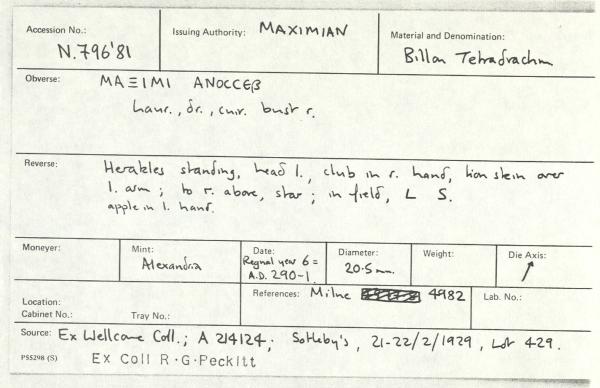 Accession No.: N.796'81
Issuing Authority: MAXIMIAN
Material and Denomination: Billon Tetradrachm
Obverse: MAΞIMI ANOCCEB
laur., dr., cuir. bust r.
Reverse: Herakles standing, head l., club in r. hand, lion skein over
l. arm; to r. above, star; in field, L S.
apple in l. hand.
Moneyer:
Mint: Alexandria
Date: Regnal year 6 =
A.D. 290-1
Diameter: 20.5 mm.
Weight:
Die Axis: ↗
Location:
Cabinet No.: Tray No.:
References: Milne 4982
Lab. No.:
Source: Ex Wellcome Coll.; A 214124; Sotheby's, 21-22/2/1929, Lot 429.
PS5298 (S) Ex Coll R.G.Peckitt